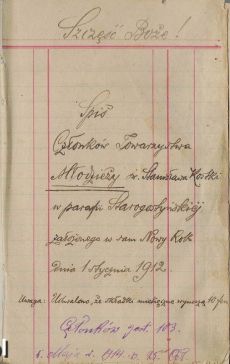 Szczęść Boże!
Spis
Członków Towarzystwa
Młodzieży św. Stanisława Kostki
w parafii Starogostyńskiej
założonego w sam Nowy Rok
dnia 1 stycznia 1912.
Uwaga: Uchwalono, że składki miesięczne wynoszą 10 fen
Członków jest 103.
1. 1914